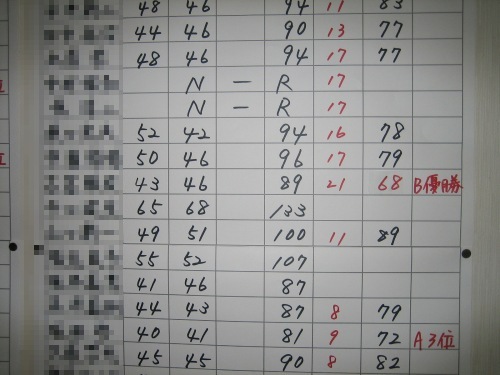 48 46 94 11 83
44 46 90 13 77
48 46 94 17 77
N - R 17
N - R 17
52 42 94 16 78
50 46 96 17 79
43 46 89 21 68 B優勝
65 68 133
49 51 100 11 89
55 52 107
41 46 87
44 43 87 8 79
40 41 81 9 72 A3位
45 45 90 8 82